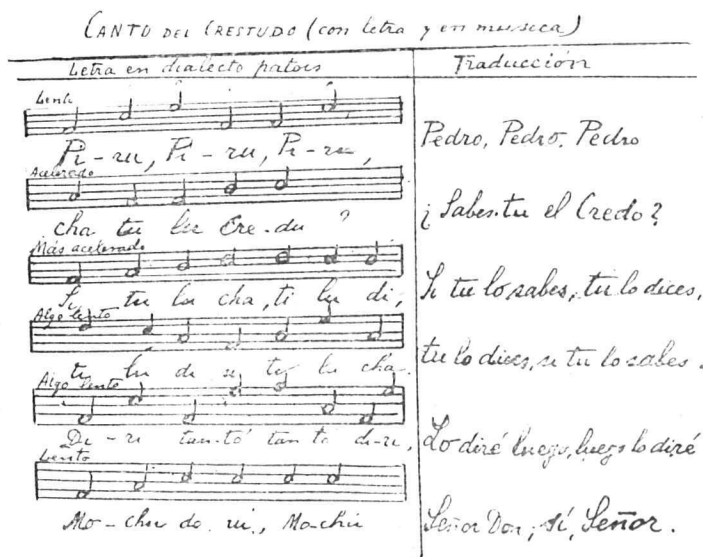 CANTO DEL CRESTUDO (con letra y en musica)
Letra en dialecto patois
Traducción
Lento
Pi-ru, Pi-ru, Pi-ru,
Pedro, Pedro, Pedro
Acelerado
cha tu lu Cre-du ?
¿ Sabes tu el Credo ?
Más acelerado
Si tu lu cha, ti lu di,
Si tu lo sabes, tu lo dices,
Algo lento
tu lu di si tu lu cha.
tu lo dices, si tu lo sabes.
Algo lento
Di-ri tan-tó tan to di-ri,
Lo diré luego, luego lo diré
Lento
Mo-chu do, Mo-chu
Señor Don; sí, Señor.